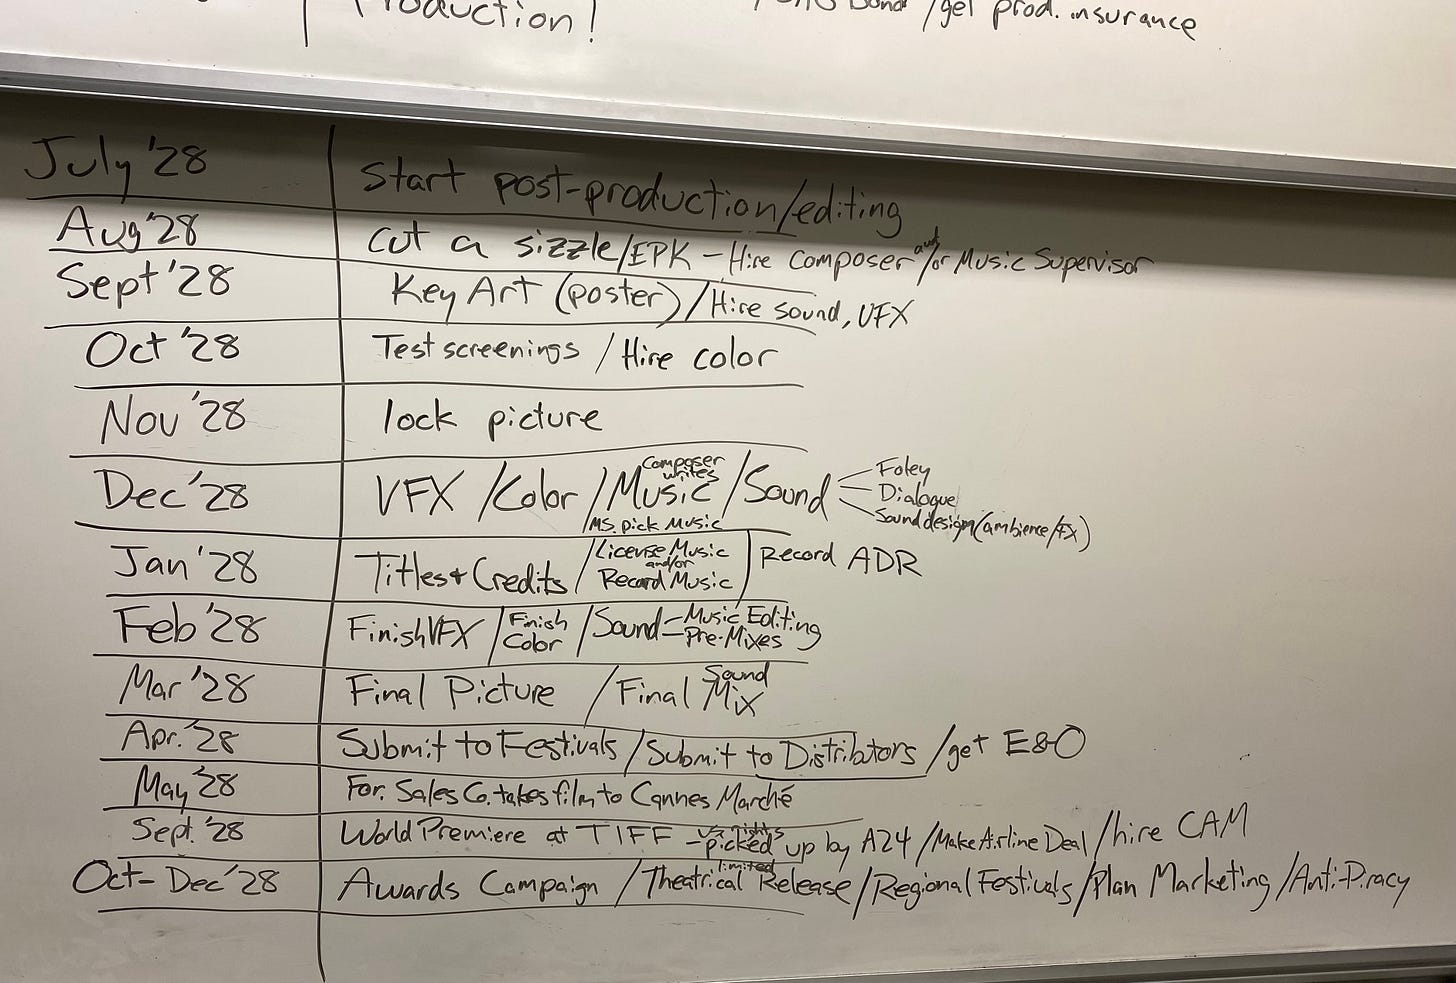 Production!
/get prod. insurance
July '28 Start post-production/editing
Aug '28 Cut a sizzle/EPK - Hire Composer and/or Music Supervisor
Sept '28 Key Art (poster) / Hire sound, VFX
Oct '28 Test screenings / Hire color
Nov '28 lock picture
Dec '28 VFX / Color / Music / Sound
Composer writes
MS. pick Music
Foley
Dialogue
Sound design (ambience/FX)
Jan '28 Titles + Credits / License Music and/or Record Music | Record ADR
Feb '28 Finish VFX / Finish Color / Sound
Music Editing
Pre-Mixes
Mar '28 Final Picture / Final Sound Mix
Apr. '28 Submit to Festivals / Submit to Distributors / get E&O
May '28 For. Sales Co. takes film to Cannes Marché
Sept. '28 World Premiere at TIFF - US rights picked up by A24 / Make Airline Deal / hire CAM
Oct - Dec '28 Awards Campaign / Theatrical limited Release / Regional Festivals / Plan Marketing / Anti-Piracy